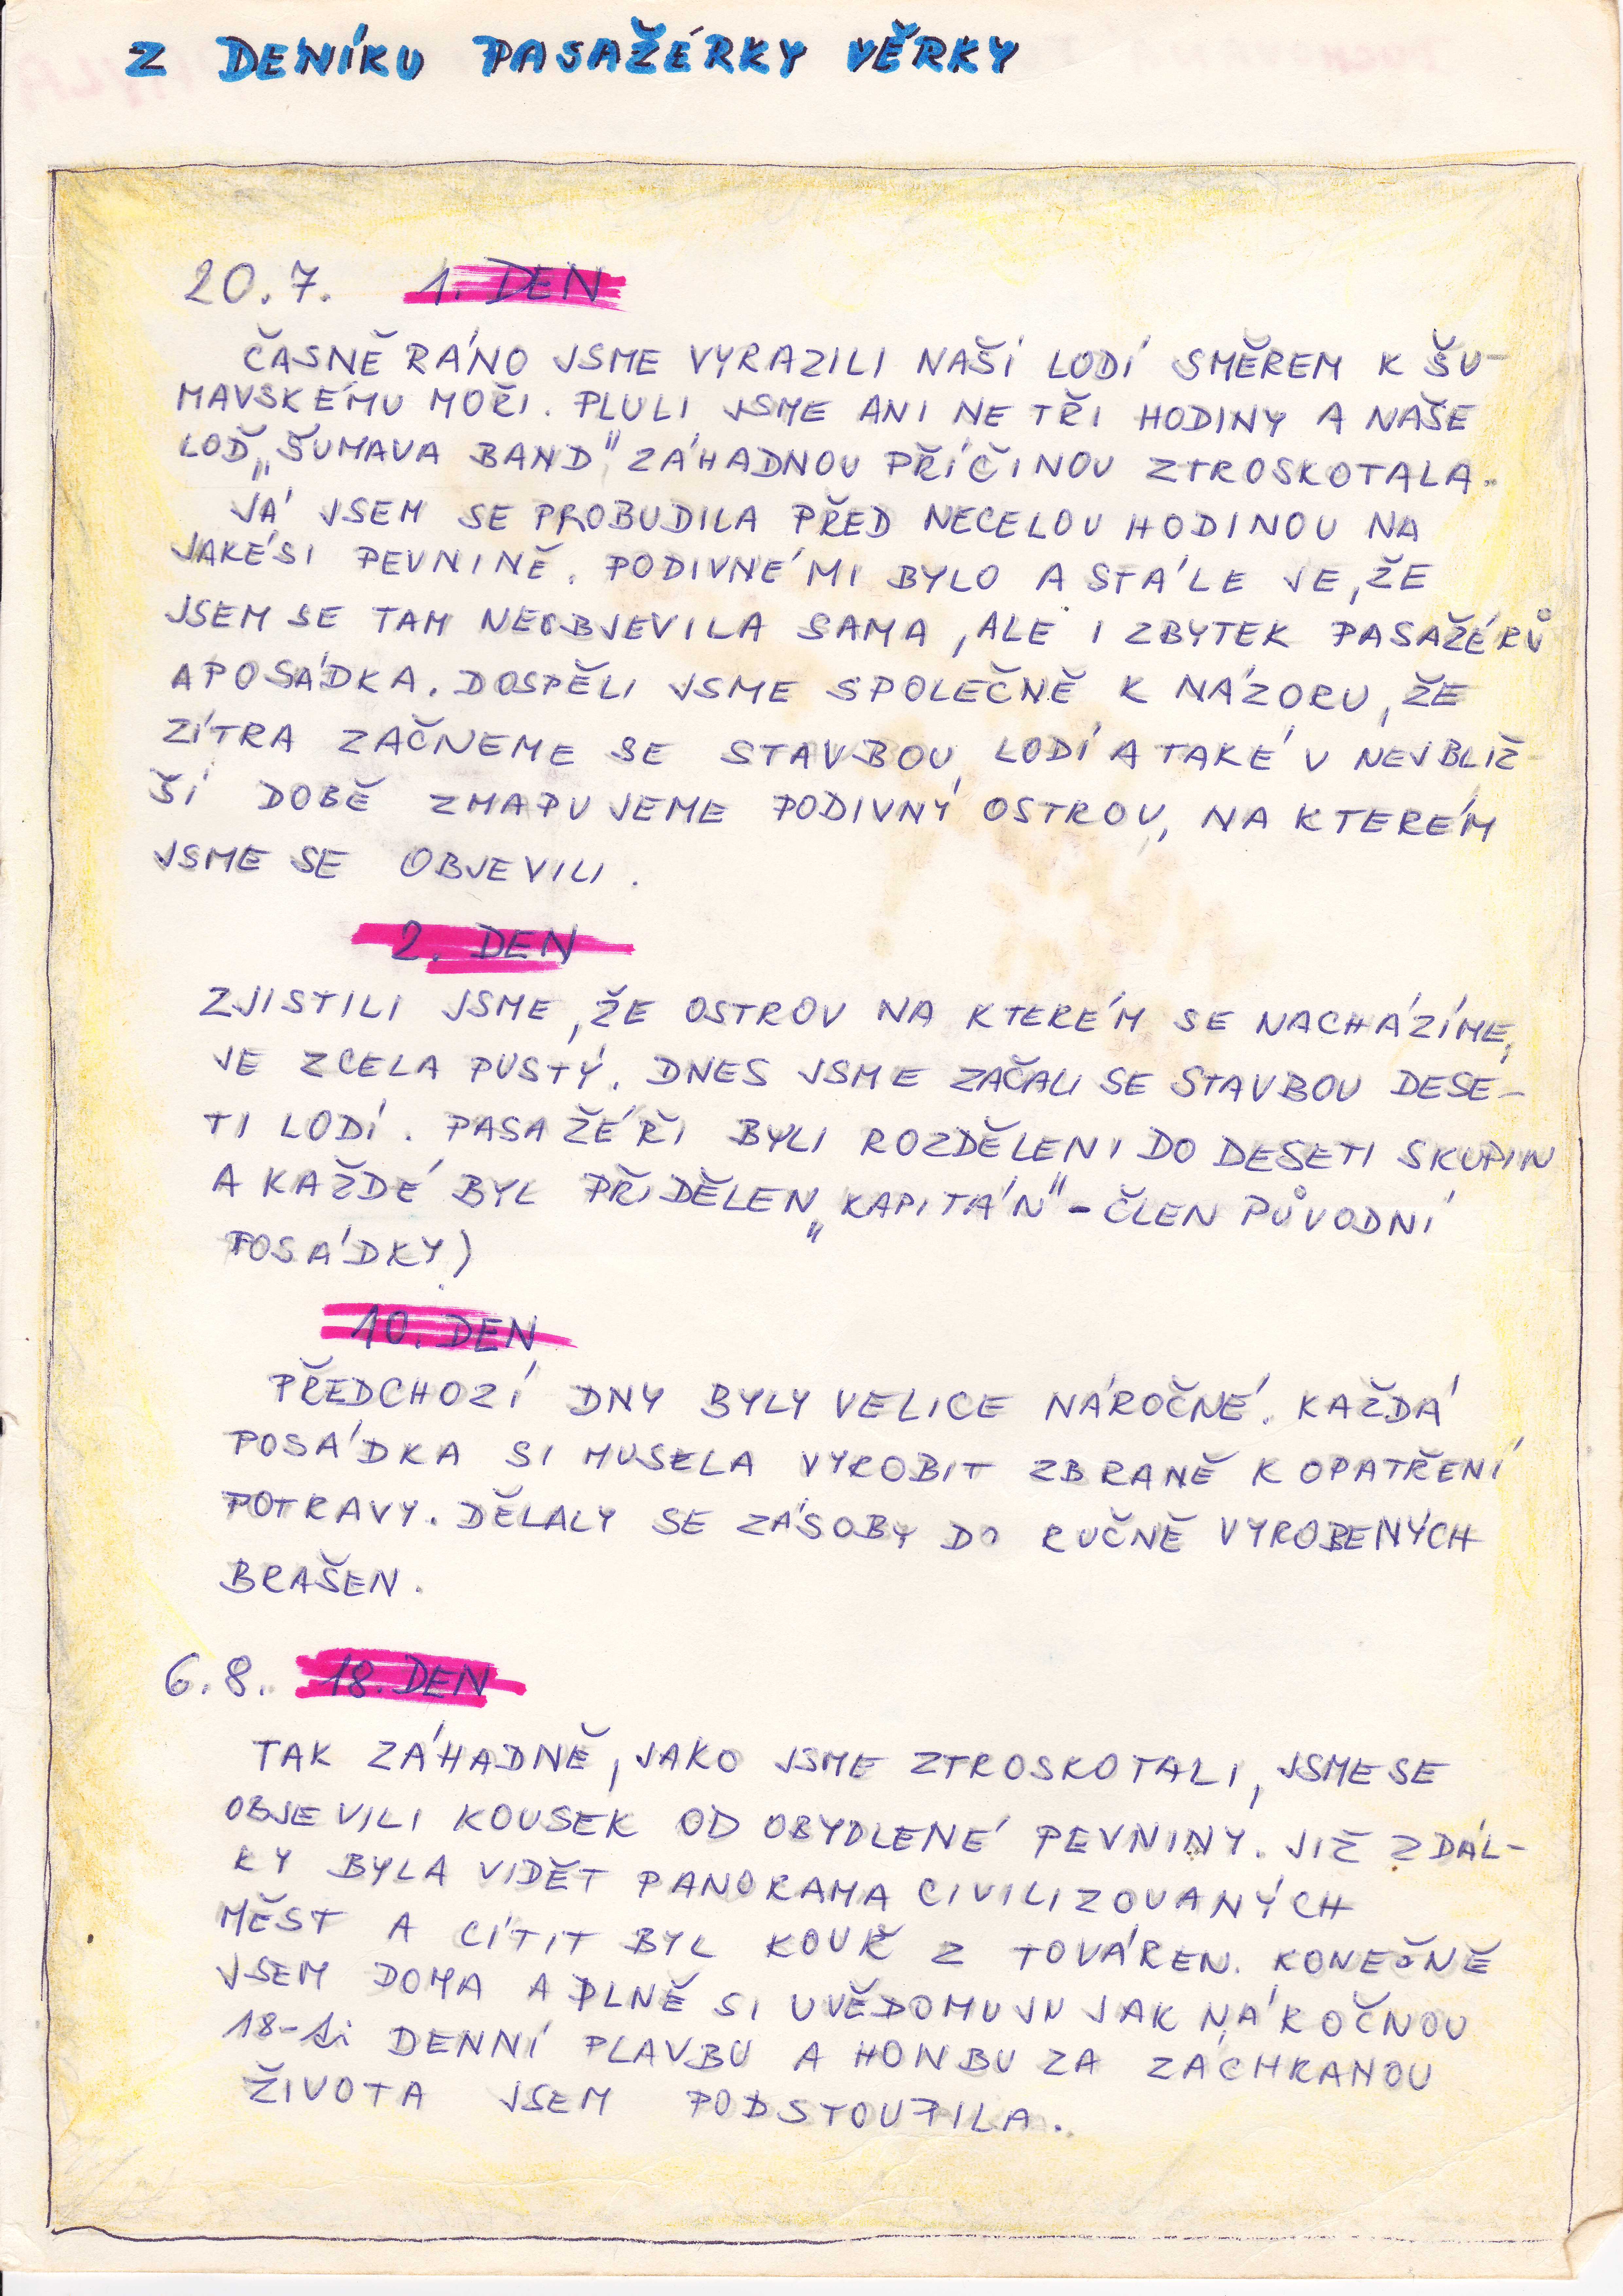 Z DENÍKU PASAŽÉRKY VĚRKY
20.7. 1. DEN
ČASNĚ RÁNO JSME VYRAZILI NAŠÍ LODÍ SMĚREM K ŠU-
MAVSKÉMU MOŘI. PLULI JSME ANI NE TŘI HODINY A NAŠE
LOĎ „ŠUMAVA BAND" ZÁHADNOU PŘÍČINOU ZTROSKOTALA.
JÁ JSEM SE PROBUDILA PŘED NECELOU HODINOU NA
JAKÉSI PEVNINĚ. PODIVNÉ MI BYLO A STÁLE JE, ŽE
JSEM SE TAM NEOBJEVILA SAMA, ALE I ZBYTEK PASAŽÉRŮ
A POSÁDKA. DOSPĚLI JSME SPOLEČNĚ K NÁZORU, ŽE
ZÍTRA ZAČNEME SE STAVBOU LODÍ A TAKÉ V NEJBLIŽ-
ŠÍ DOBĚ ZMAPUJEME PODIVNÝ OSTROV, NA KTERÉM
JSME SE OBJEVILI.
2. DEN
ZJISTILI JSME, ŽE OSTROV NA KTERÉM SE NACHÁZÍME,
JE ZCELA PUSTÝ. DNES JSME ZAČALI SE STAVBOU DESE-
TI LODÍ. PASAŽÉŘI BYLI ROZDĚLENI DO DESETI SKUPIN
A KAŽDÉ BYL PŘIDĚLEN „KAPITÁN" - ČLEN PŮVODNÍ
POSÁDKY)
10. DEN
PŘEDCHOZÍ DNY BYLY VELICE NÁROČNÉ. KAŽDÁ
POSÁDKA SI MUSELA VYROBIT ZBRANĚ K OPATŘENÍ
POTRAVY. DĚLALY SE ZÁSOBY DO RUČNĚ VYROBENÝCH
BRAŠEN.
6.8. 18. DEN
TAK ZÁHADNĚ, JAKO JSME ZTROSKOTALI, JSME SE
OBJEVILI KOUSEK OD OBYDLENÉ PEVNINY. JIŽ ZDÁL-
KY BYLA VIDĚT PANORAMA CIVILIZOVANÝCH
MĚST A CÍTIT BYL KOUŘ Z TOVÁREN. KONEČNĚ
JSEM DOMA A PLNĚ SI UVĚDOMUJU JAK NÁROČNOU
18-ti DENNÍ PLAVBU A HONBU ZA ZÁCHRANOU
ŽIVOTA JSEM PODSTOUPILA.